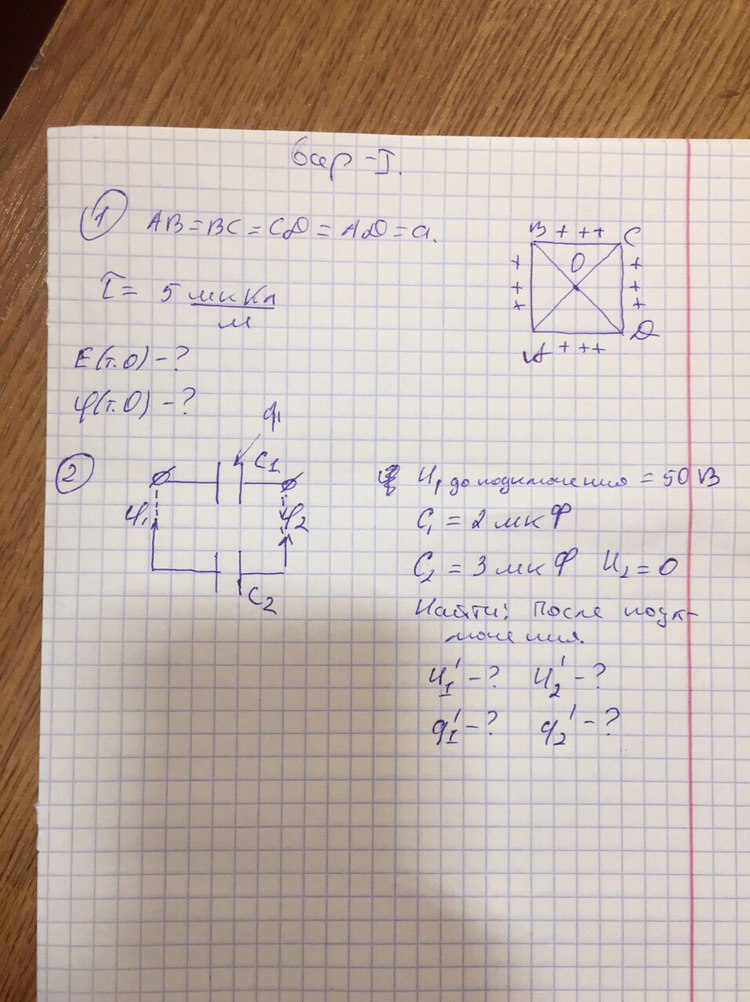 Вар-I.
① AB = BC = CD = AD = a.
B + + + C
O
+ +
+ +
+ +
A + + + D
τ = 5 мкКл/м
E(т.О) - ?
φ(т.О) - ?
q₁
② C₁
φ₁ φ₂
C₂
U₁ до подключения = 50 В
C₁ = 2 мкФ
C₂ = 3 мкФ U₂ = 0
Найти: После подк-
лючения.
U₁' - ? U₂' - ?
q₁' - ? q₂' - ?